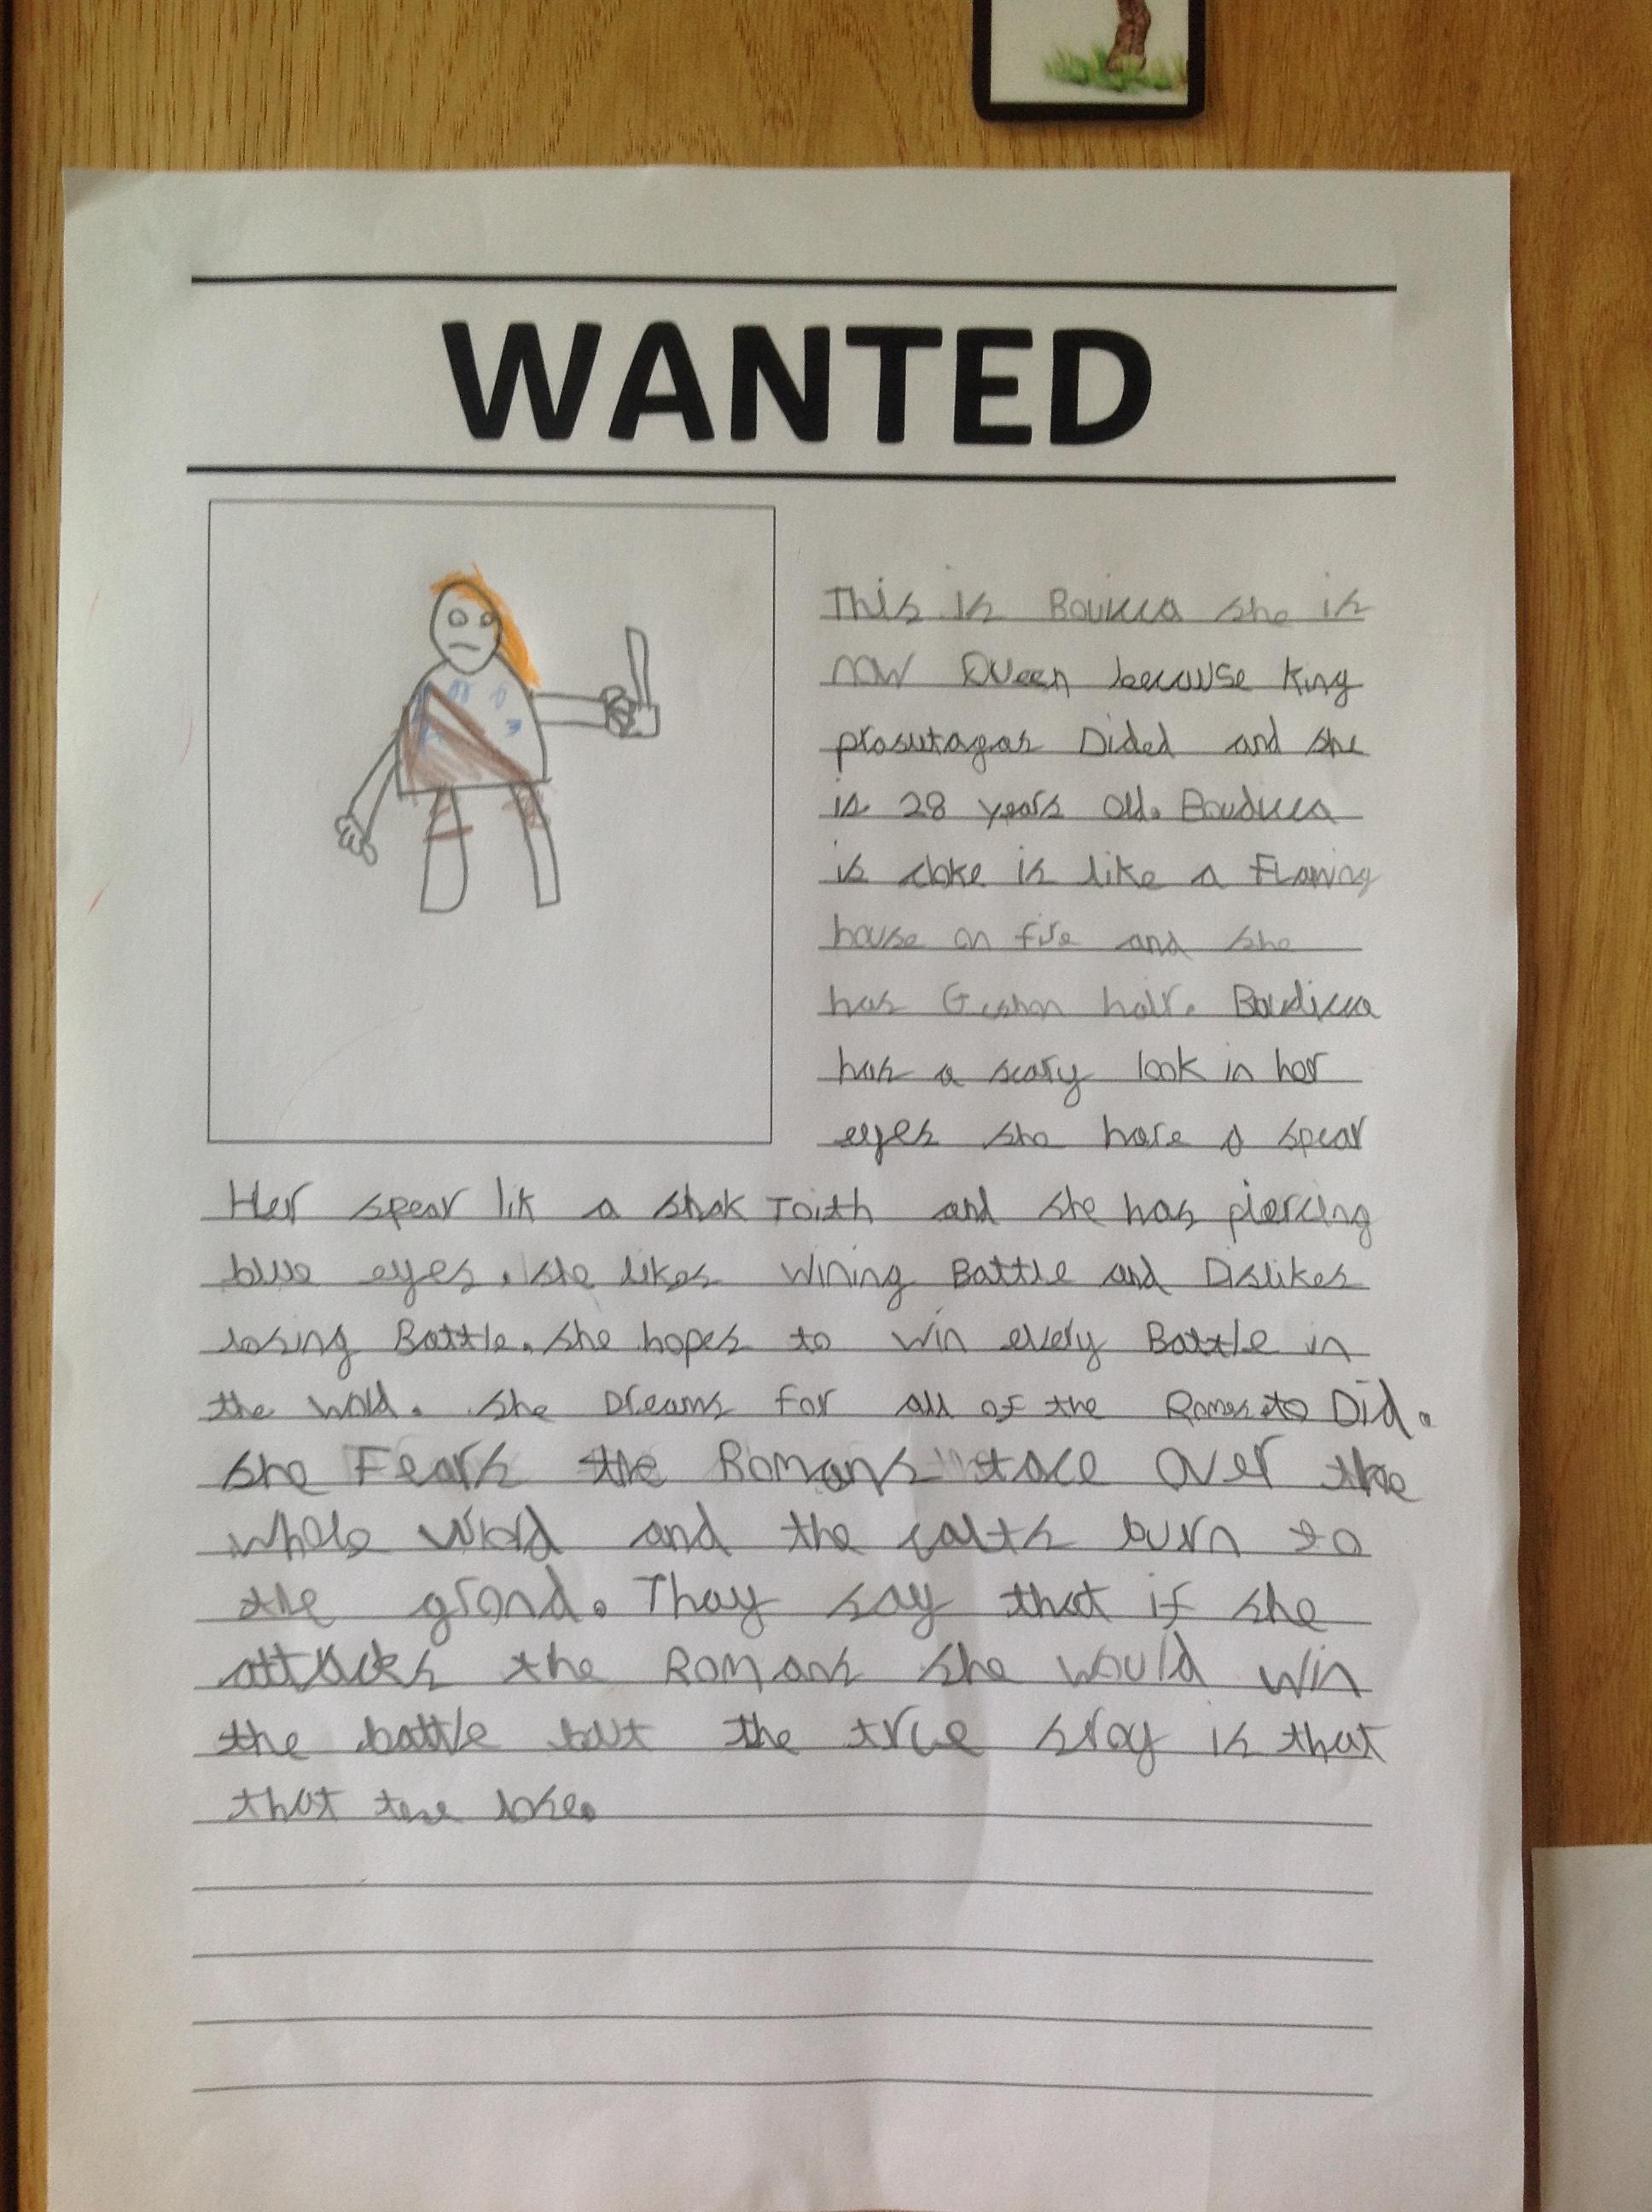 WANTED
This is Bouicca she is
now Queen because King
prosutagas Dided and she
is 28 years old. Boudicca
is cloke is like a Flaming
house on fire and she
has hair. Boudicca
has a scary look in her
eyes she have a spear
Her spear lik a shak Toith and she has piercing
blue eyes. she likes wining Battle and Dislikes
losing Battle. she hopes to win every Battle in
the wold. she Dreams for all of the Romes to Did.
she Fears the Romans tace over the
whole world and the earth burn to
the grond. Thay say that if she
attacks the Romans she would win
the battle but the true stoy is that
that